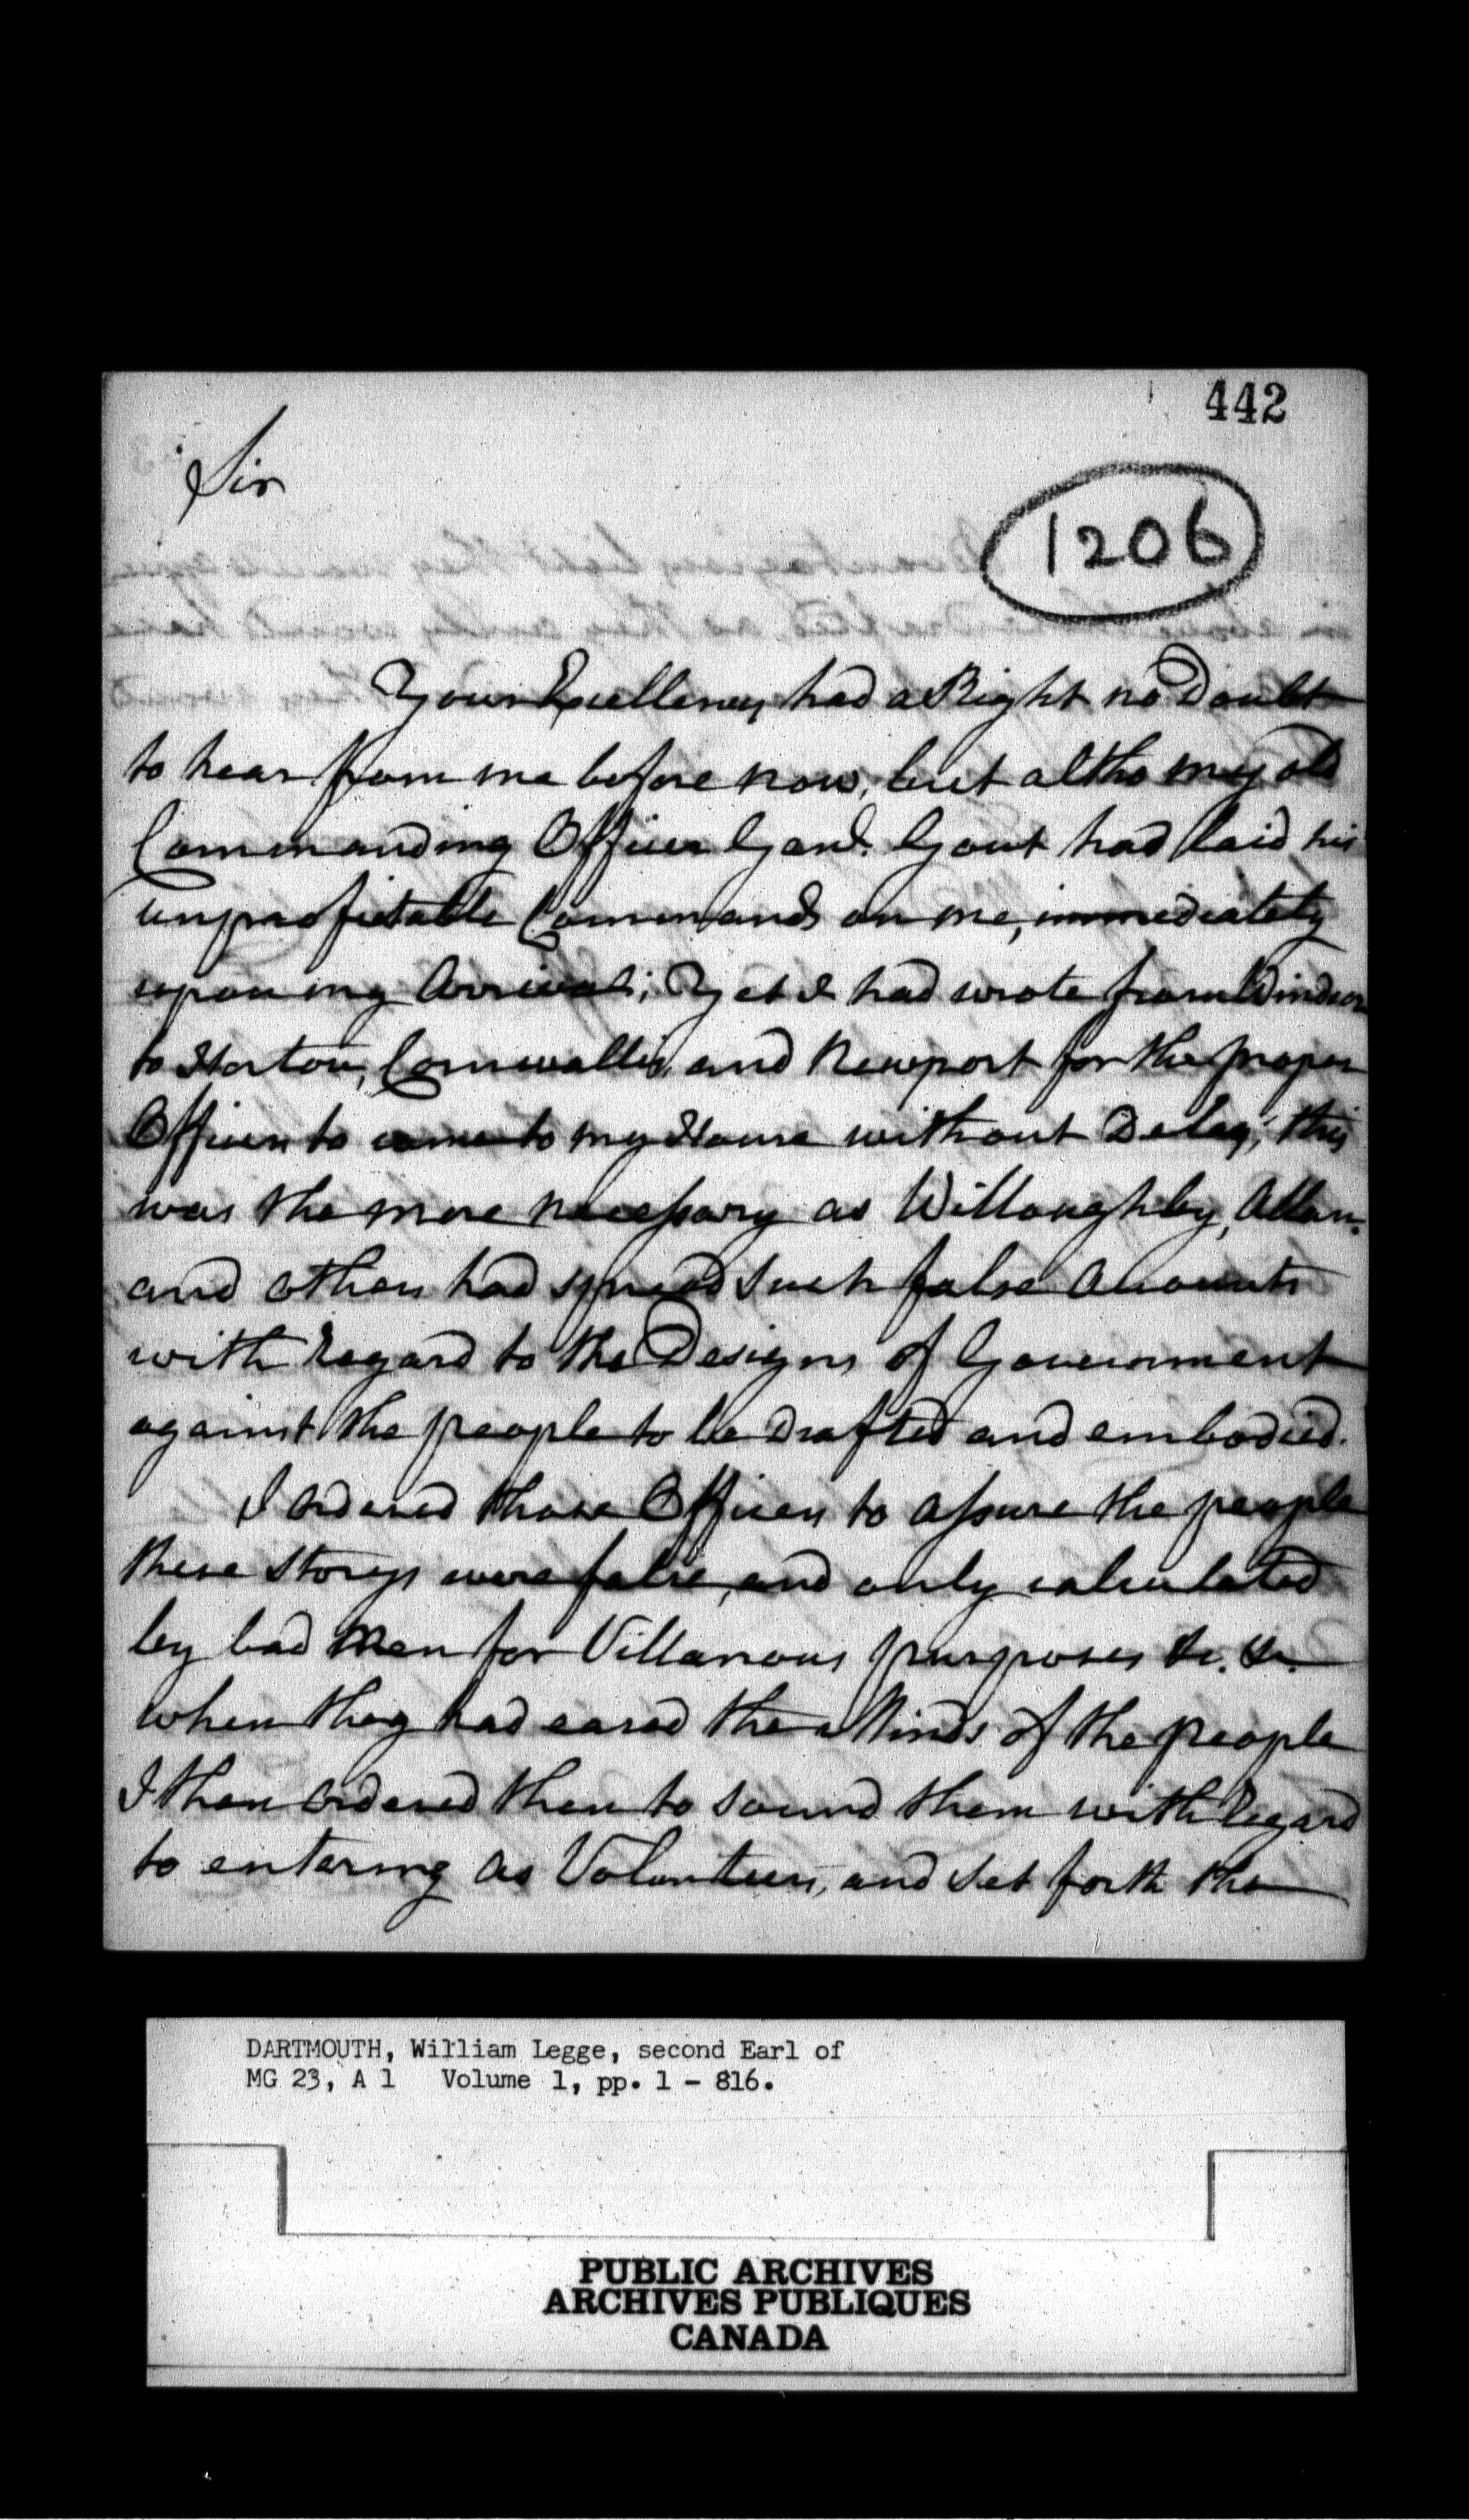 442
Sir
1206
Your Excellency had a Right no Doubt
to hear from me before now, but altho my old
Commanding Officer Genl. Gout had laid his
unprofitable Commands on me, immediately
upon my Arrival; Yet I had wrote from Windsor
to Horton, Cornwallis, and Newport for the proper
Officers to come to my House without Delay; this
was the more necessary as Willoughby, Allan.
and others had spread such false Accounts
with Regard to the Designs of Government
against the people to be Drafted and embodied.
I ordered those Officers to assure the people
these storys were false, and only calculated
by bad Men for Villanous purposes &c. &c.
when they had eased the Minds of the people
I then Ordered them to sound them with Regard
to entering as Volunteers, and set forth the
DARTMOUTH, William Legge, second Earl of
MG 23, A 1 Volume 1, pp. 1 - 816.
PUBLIC ARCHIVES
ARCHIVES PUBLIQUES
CANADA